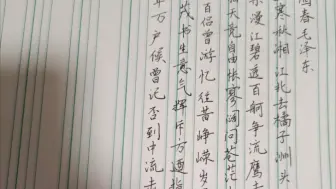 园春毛泽东
寒秋湘江北去橘子洲头
漫江碧透百舸争流鹰击
天竞自由怅寥廓问苍茫
百侣曾游忆往昔峥嵘岁
茂书生意气挥斥方遒指
万户候曾记否到中流击